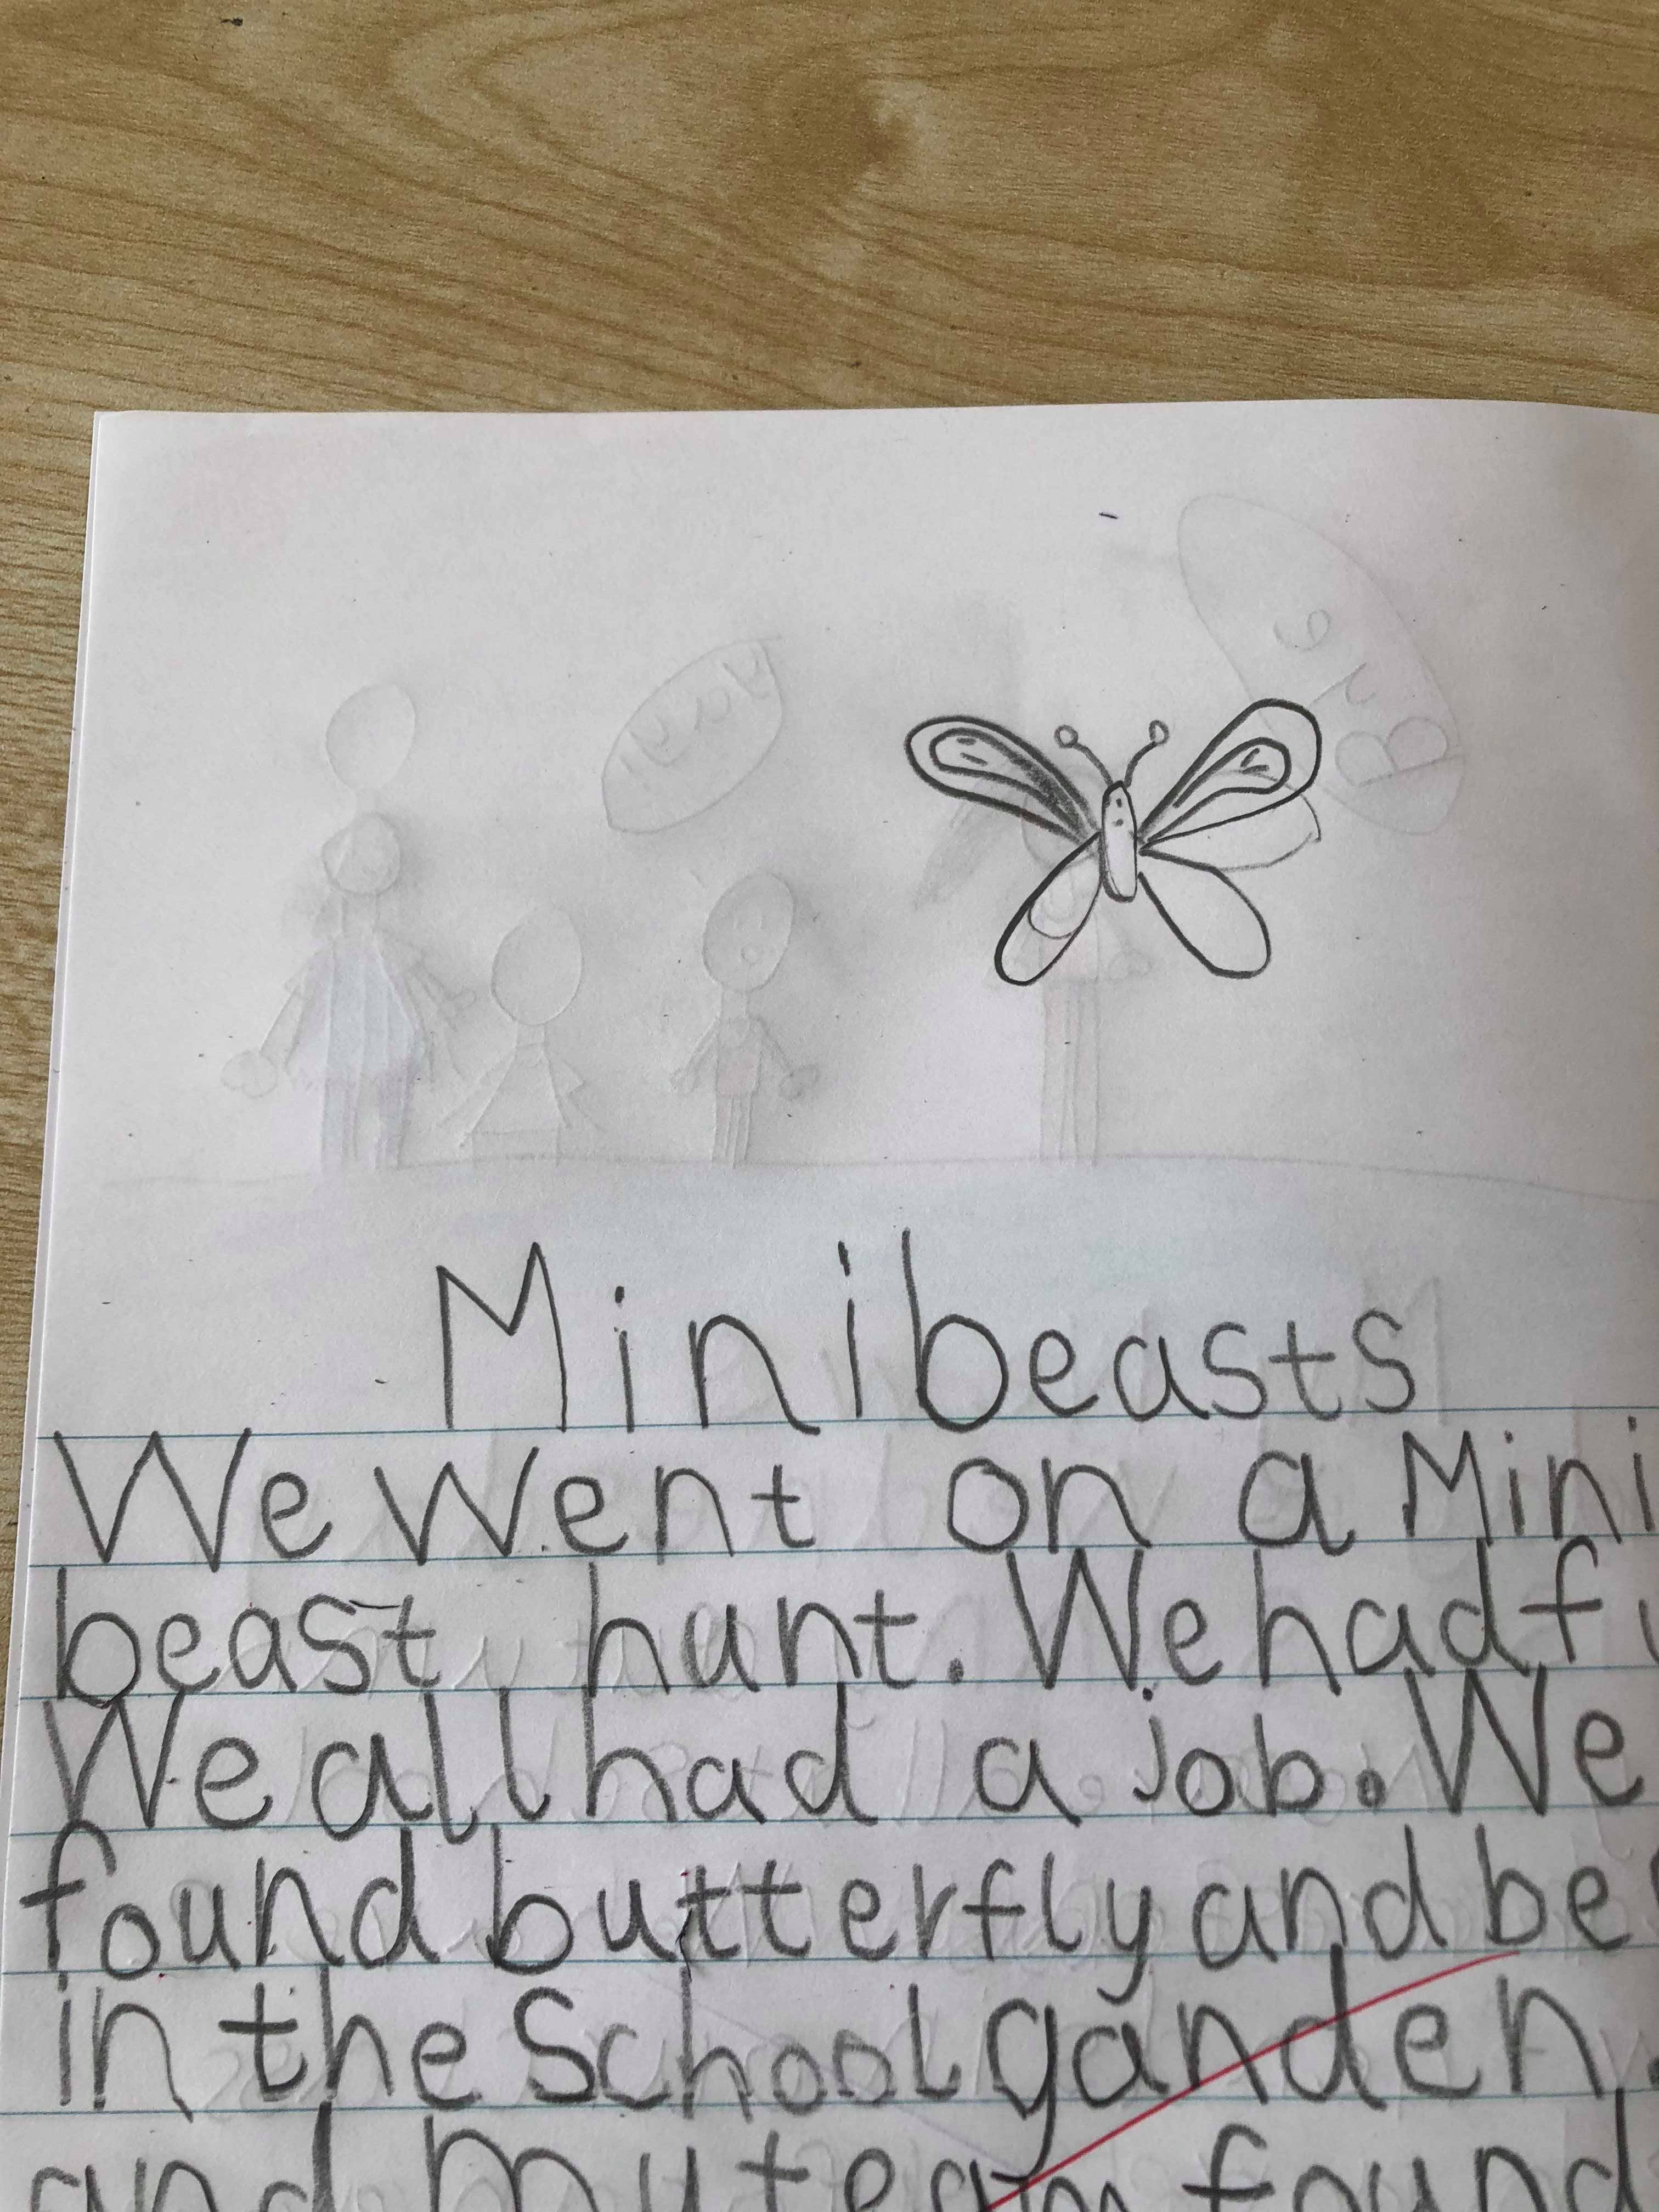 Minibeasts
We went on a Mini
beast hunt. We had
We all had a job. We
found butterfly and
in the School ganden.
and my team found